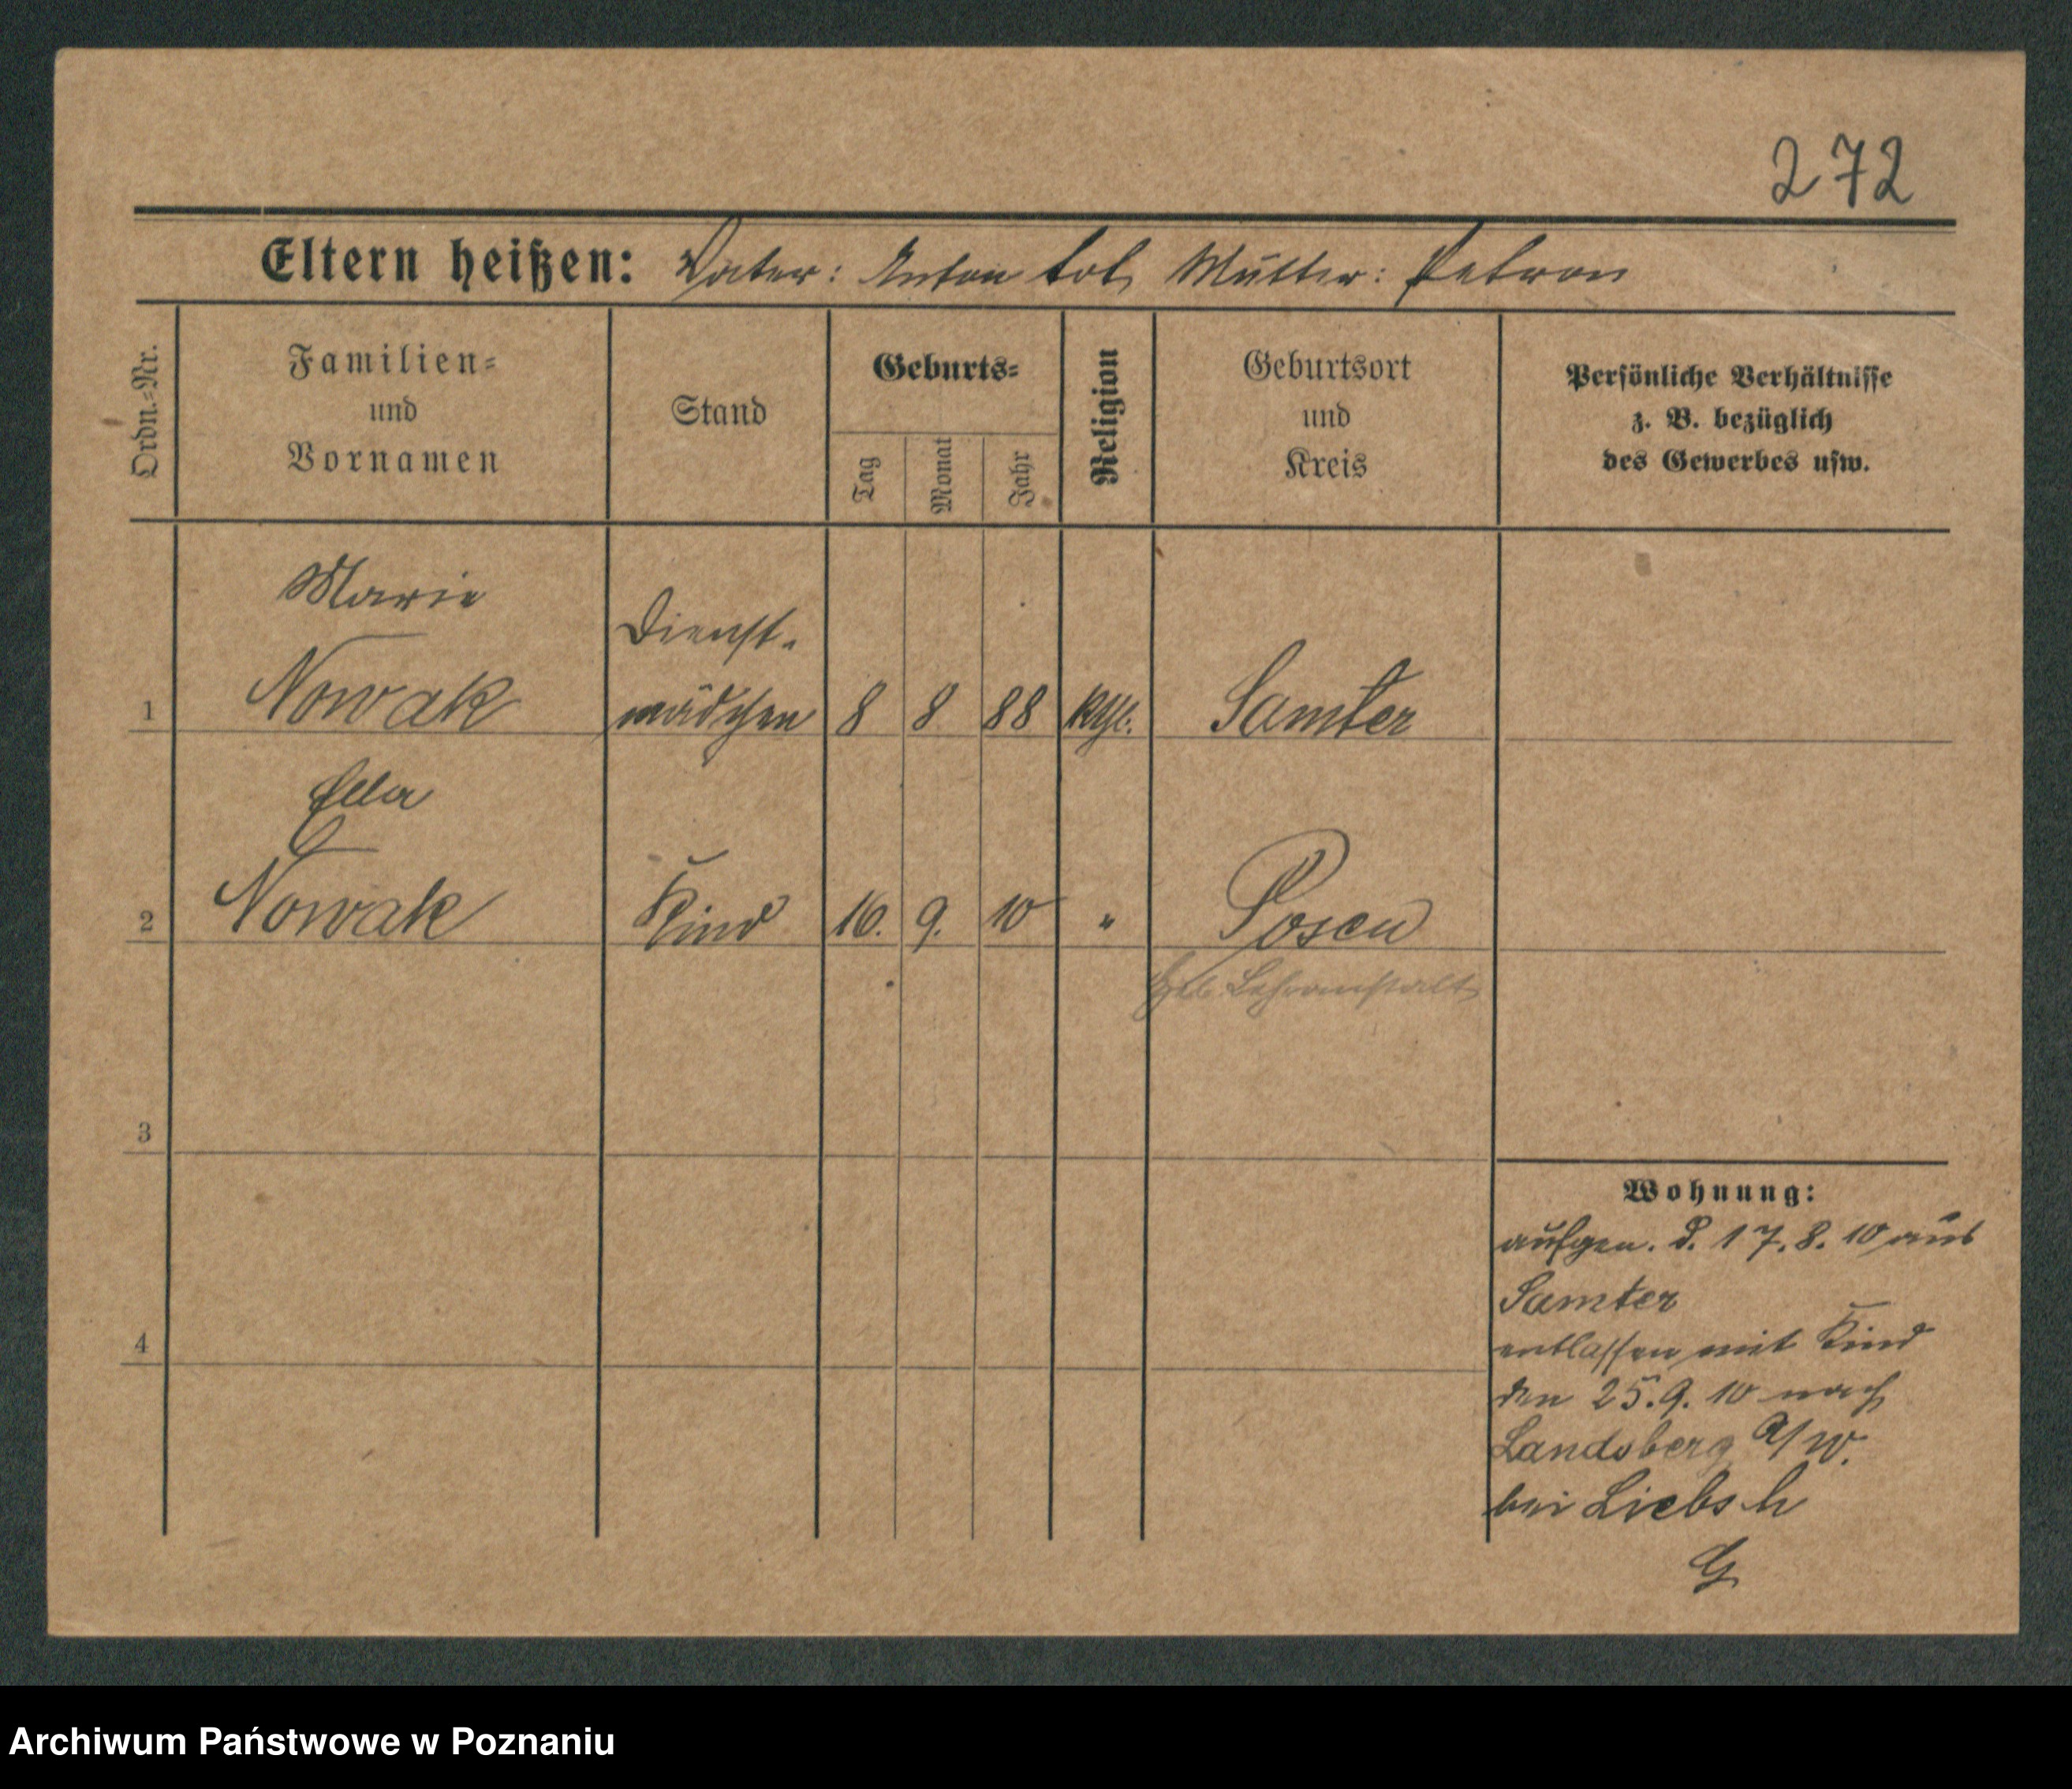 272
Eltern heißen: Vater: Anton tot, Mutter: Petron
Ordn.-Nr.
Familien-
und
Vornamen
Stand
Geburts-
Tag
Monat
Jahr
Religion
Geburtsort
und
Kreis
Persönliche Verhältnisse
z. B. bezüglich
des Gewerbes usw.
Marie
Dienst-
1 Nowak mädchen 8 8 88 kth. Samter
Ella
2 Nowak Kind 16. 9. 10 " Posen
Lehranstalt
3
Wohnung:
aufgen. d. 17.8.10 aus
Samter
4
entlassen mit Kind
den 25.9.10 nach
Landsberg a/W.
bei Liebsch
Archiwum Państwowe w Poznaniu